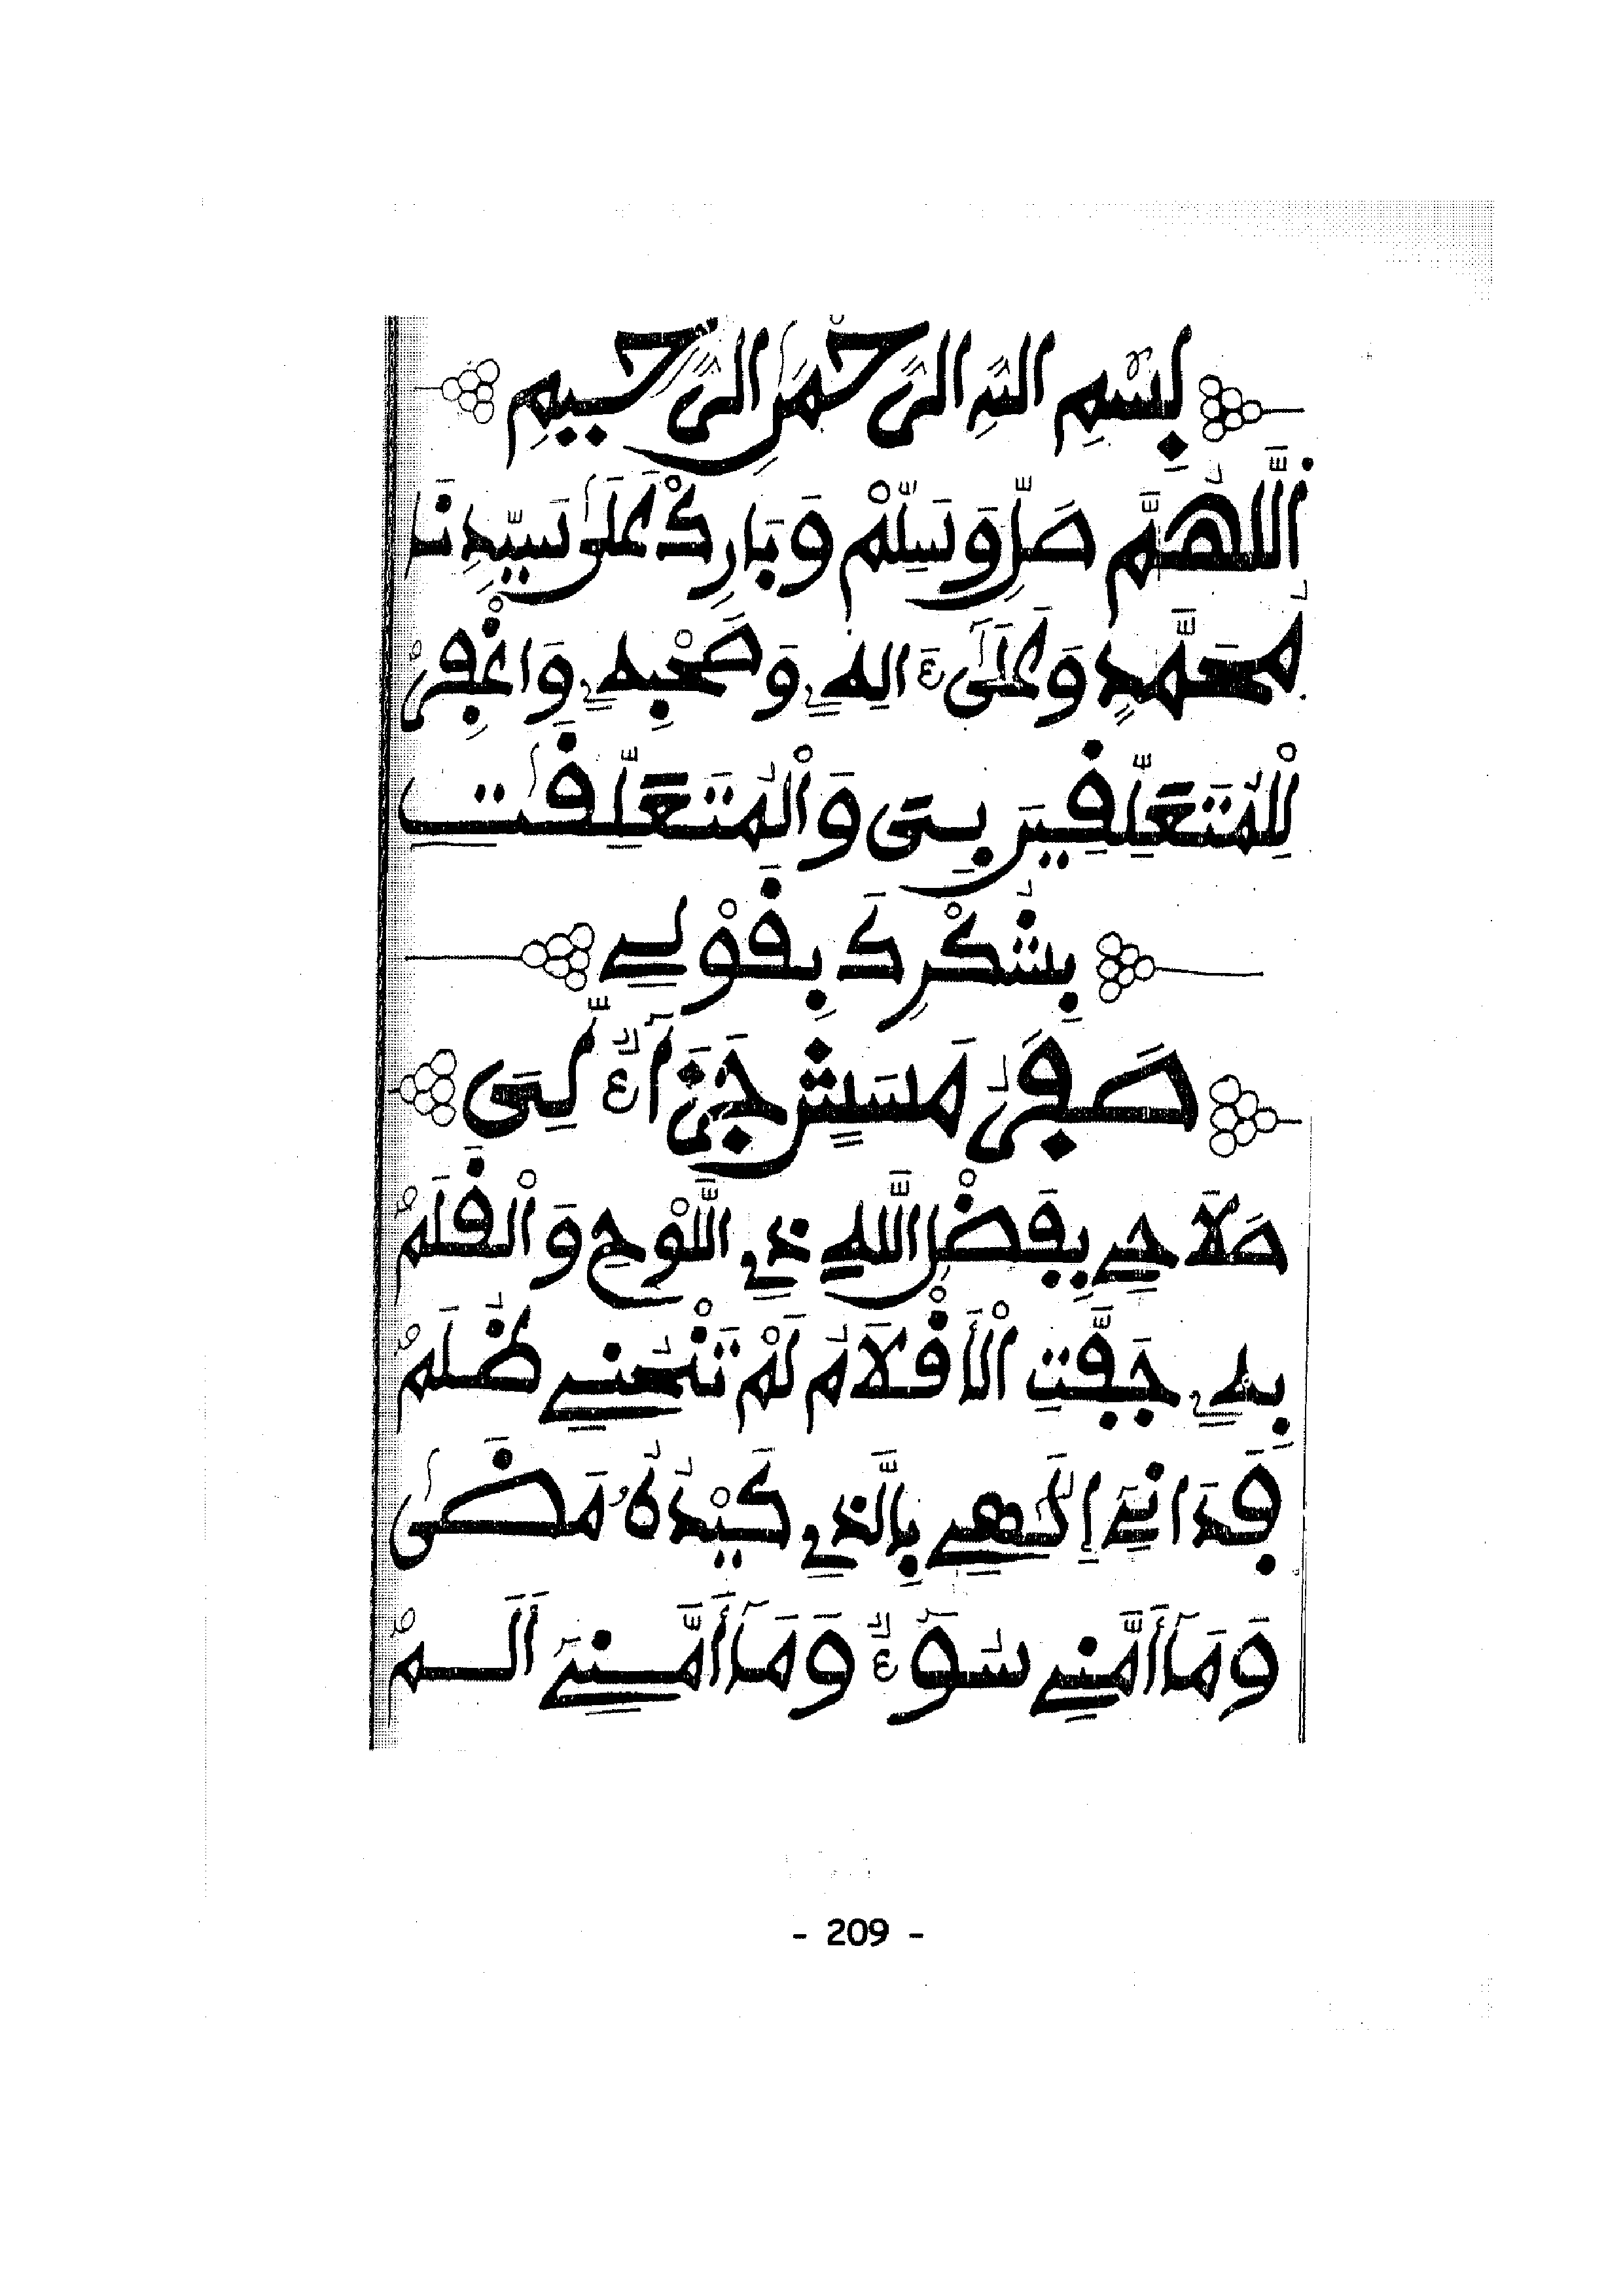 بِسْمِ اللَّهِ الرَّحْمَٰنِ الرَّحِيمِ
اَللَّهُمَّ صَلِّ وَسَلِّمْ وَبَارِكْ عَلَىٰ سَيِّدِنَا
مُحَمَّدٍ وَعَلَىٰ ءَالِهِ وَصَحْبِهِ وَاغْفِرْ
لِلْمُتَعَلِّقِينَ بِيَ وَالْمُتَعَلِّقَٰتِ
بِشُكْرِكَ بِقَوْلِي
صَفَرُ مَسَشٍ جَزَآءٌ لِّيَ
صَلَاحِي بِفَضْلِ اللَّهِ ذِي اللَّوْحِ وَالْقَلَمْ
بِهِ جَفَّتِ الْأَقْلَامُ لَمْ تَنْحُنِي ظُلَمْ
فَدَانِي إِلَٰهِي بِالَّذِي كَيْدُهُ مَضَىٰ
وَمَا أَمَّنِي سُوٓءٌ وَمَا أَمَّنِي أَلَمْ
- 209 -